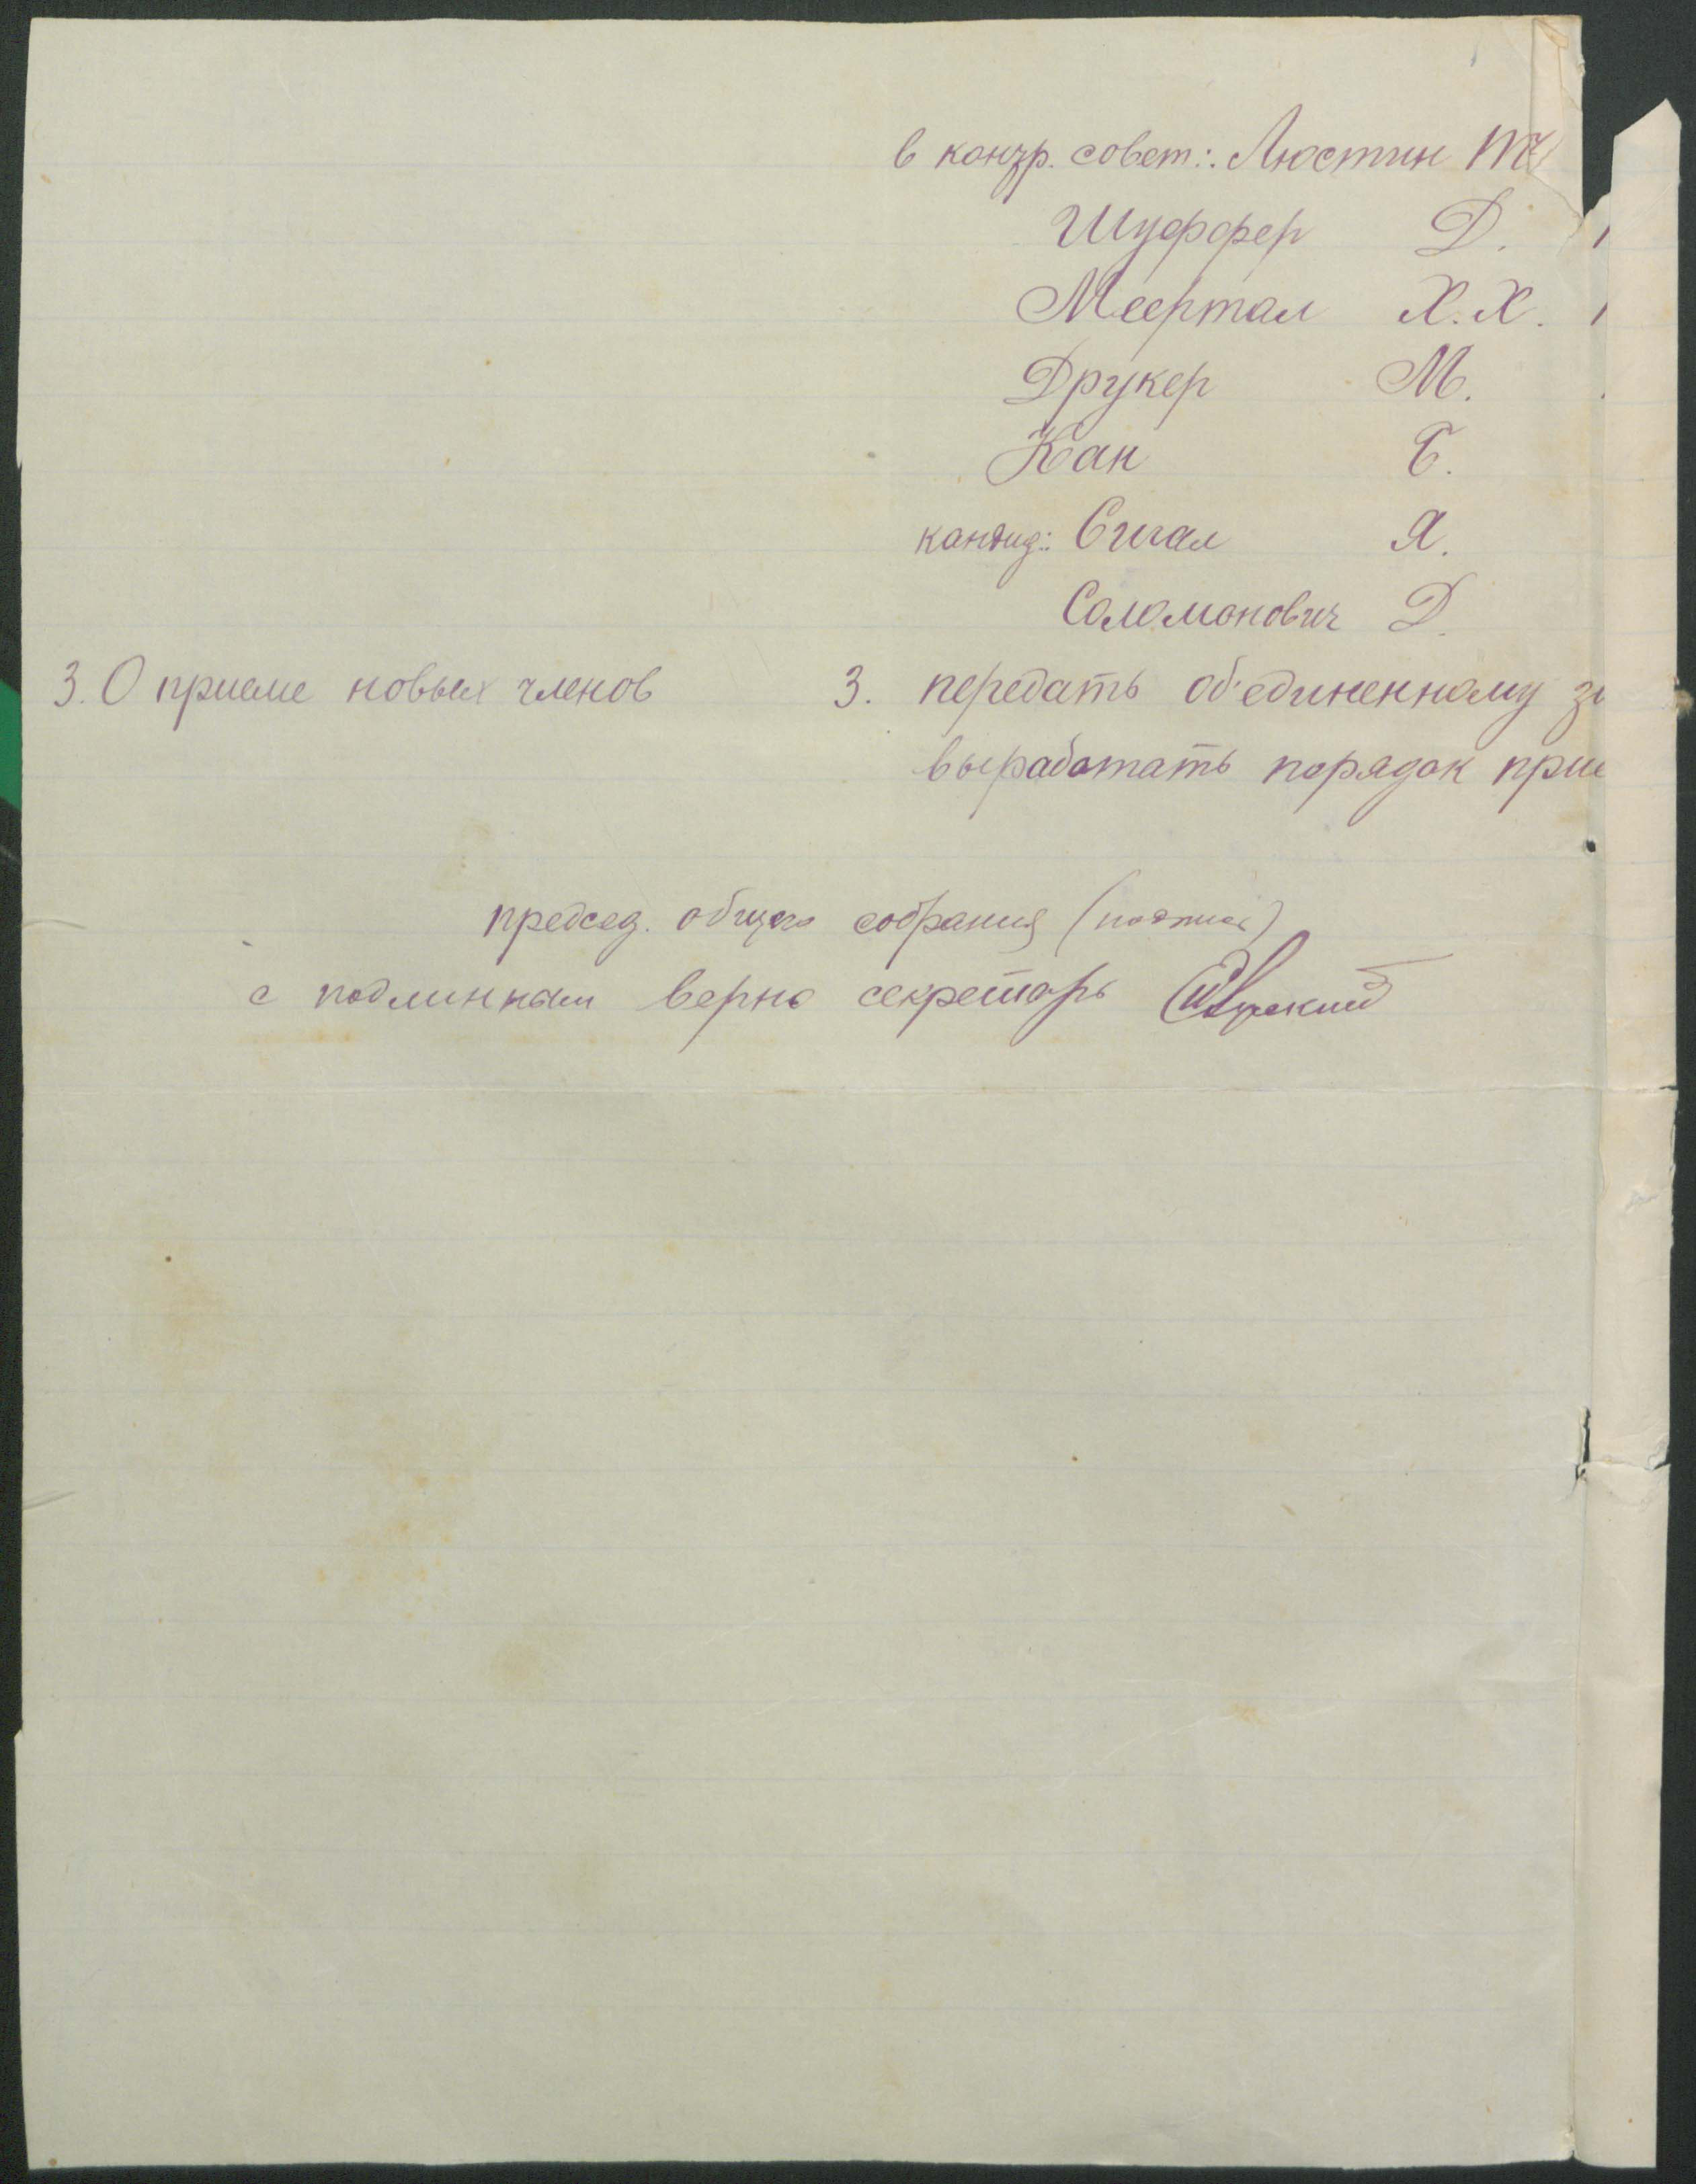 в контр. совет: Люстин
Шуффер Д.
Меертал Х.Х.
Друкер М.
Кан Б.
кандид: Сигал Я.
Соломонович Д.
3. О приеме новых членов 3. передать об'единенному
выработать порядок
председ. общего собрания (подпись)
с подлинным верно секретарь